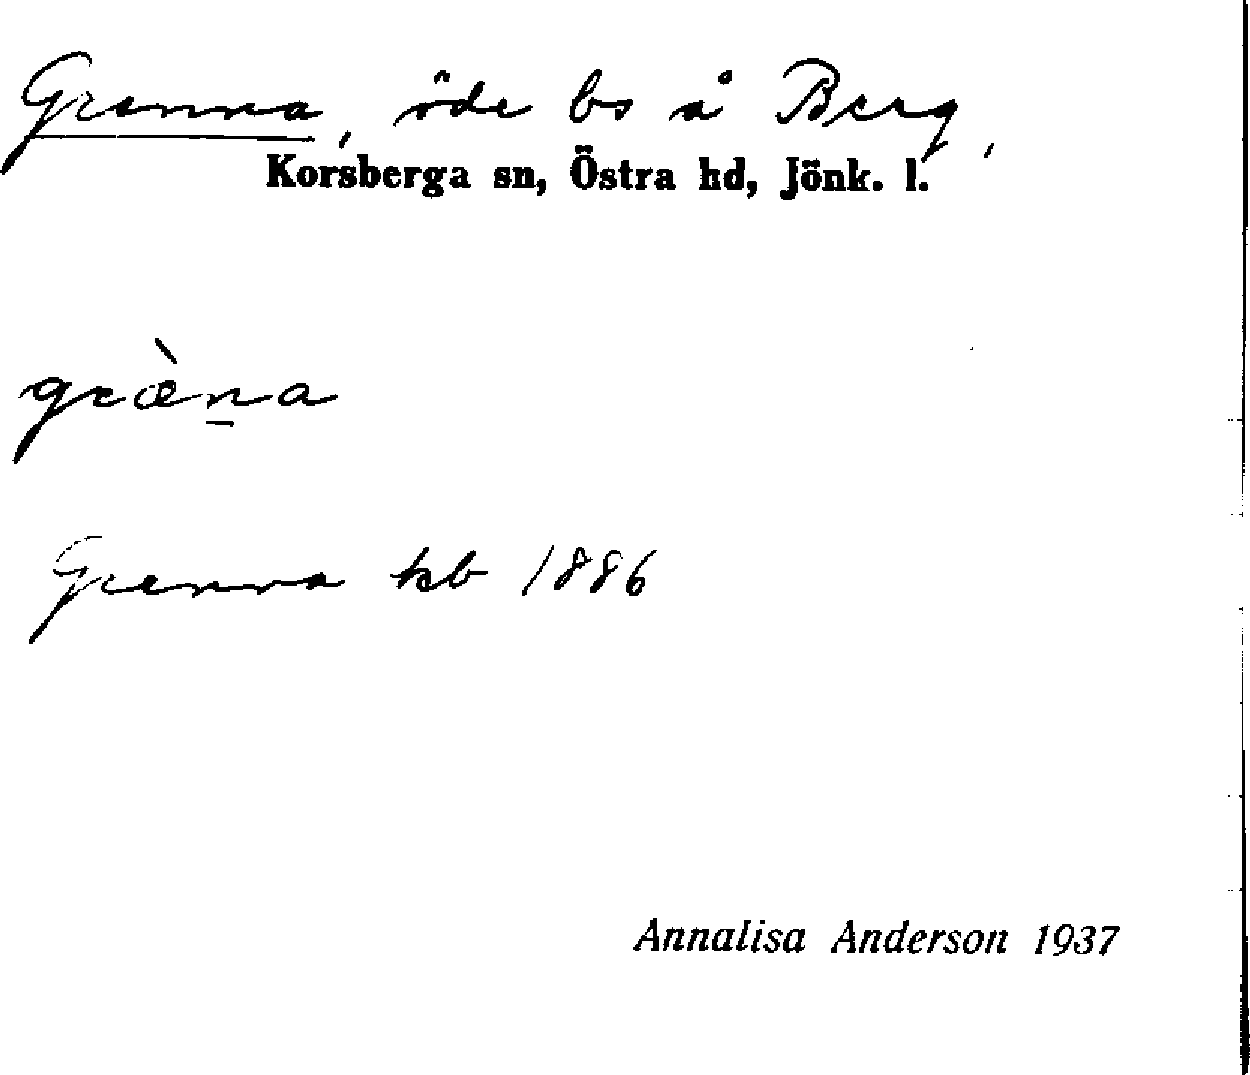 Grenna, öde bs å Berg,
Korsberga sn, Östra hd, Jönk. l.
græ̀n̲a
Grenna kb 1886
Annalisa Anderson 1937